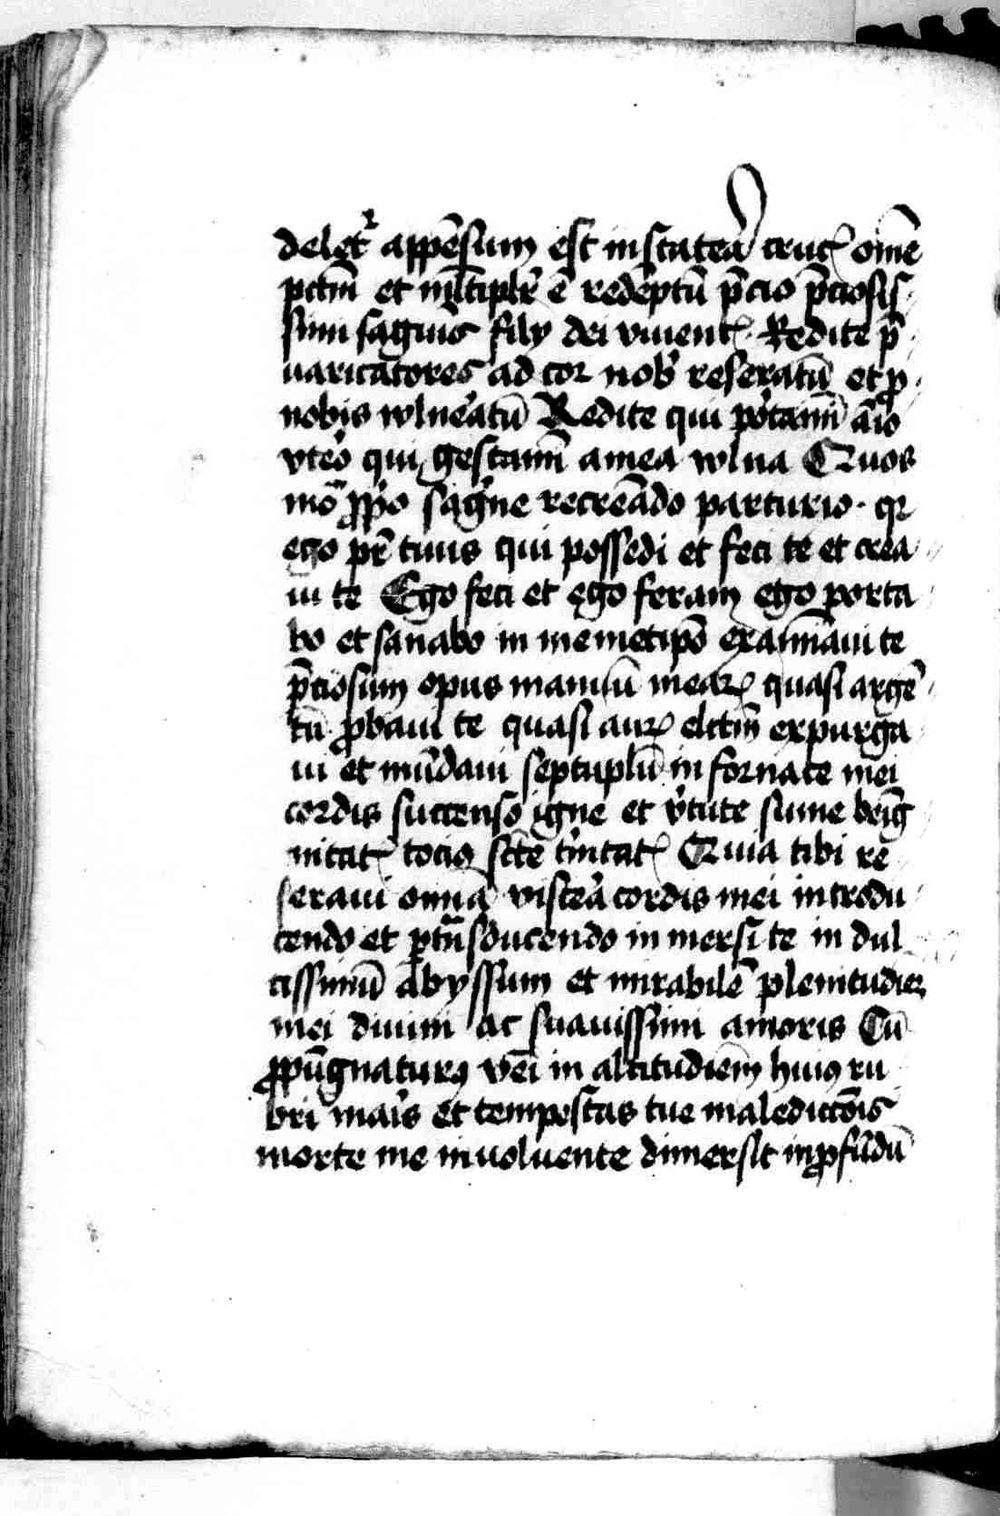 deletᷣ appēsum est in stateraͣ crucꝭ om̄e
pctm̄ et ml̄tiplr̄ ē redēptū p̄cio p̄ciosis
simi sāgīs filÿ dei viuentꝭ Redite p̄
uaricatores ad cor nob̄ reseratū et ꝓ
nobis wlneratū Redite qui portaminī a meo
vteō qui gestaminī a mea wlua Quos
mō ꝓpo sāgⁱne recreādo parturio · q2
ego pr̄ tuus qui possedi et feci te et crea
ui te Ego feci et ego feram ego porta
bo et sanabo in memetipō examīaui te
p̄ciosum opus manuū mearꝝ quasi argē
tū ꝓbaui te quasi aurꝝ elctm̄ expurga
ui et mūdaui septuplū in fornace mei
cordis succenso igne et v̓tute sūme benīg
nitatꝭ tociꝰ scē tⁱnitatꝭ Quia tibi re
seraui omīa viscera cordis mei introdu
cendo et ꝑtn̄sducendo inmersi te in dul
cissimū abyssum et mirabilē plenitudiēz
mei diuini ac suauissimi amoris Cū
ꝓpūgnaturꝰ vēi in altitudiēm huiꝰ ru
bri maīs et tempestas tue maledictōis
morte me inuoluente dimersit in ꝓfūdū